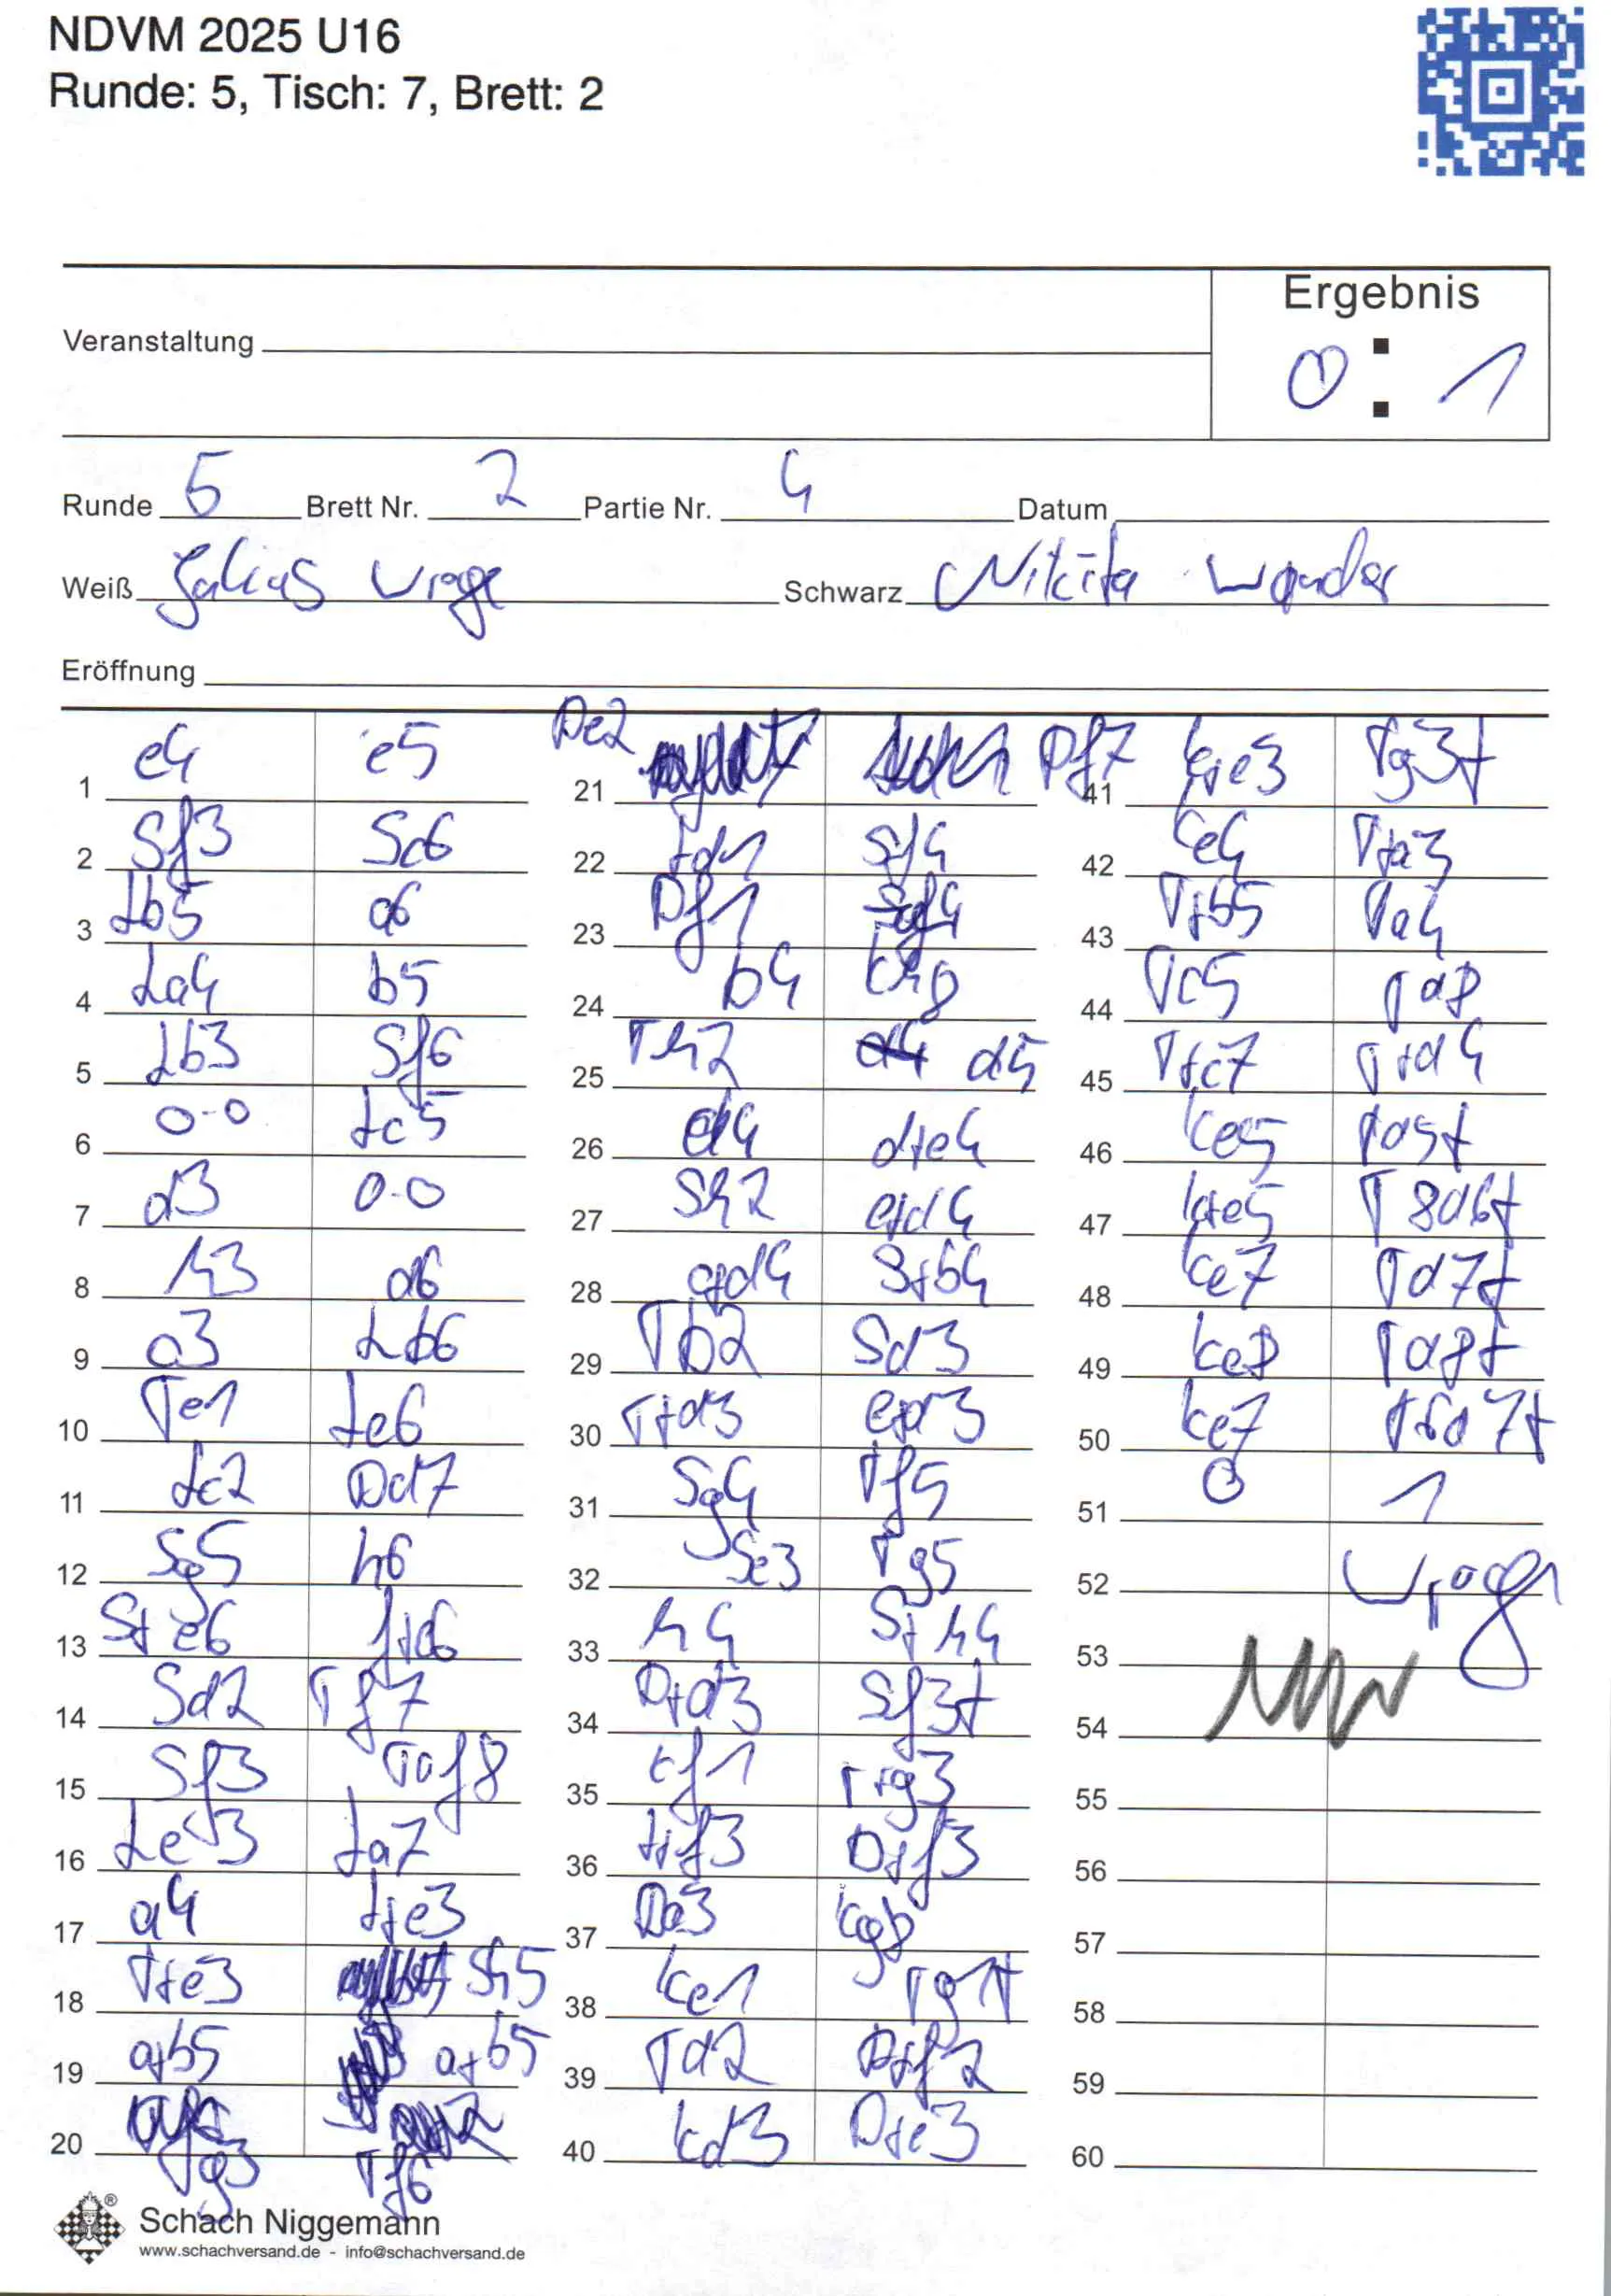 NDVM 2025 U16
Runde: 5, Tisch: 7, Brett: 2
Ergebnis
Veranstaltung
0 : 1
Runde 5 Brett Nr. 2 Partie Nr. 4 Datum
Weiß Schwarz Nikita
Eröffnung
1 e4 e5
2 Sf3 Sc6
3 Lb5 a6
4 La4 b5
5 Lb3 Sf6
6 0-0 Lc5
7 d3 0-0
8 h3 d6
9 a3 Lb6
10 Te1 Le6
11 Lc2 Dd7
12 Sg5 h6
13 S+e6 f+e6
14 Sd2 Tf7
15 Sf3 Taf8
16 Le3 La7
17 a4 L+e3
18 T+e3 Sh5
19 a+b5 a+b5
20 Tg3 Tf6
21 De2 Df7
22 Ld1 Sf4
23 Df1
24 b4 Kh8
25 Th2 d4 d5
26 d4 d+e4
27 Sh2 e+d4
28 c+d4 S+b4
29 Tb2 Sd3
30 T+d3 e+d3
31 Sg4 Tf5
32 Se3 Tg5
33 h4 S+h4
34 D+d3 Sf3+
35 Kf1 T+g3
36 L+f3 D+f3
37 Da3 Kg8
38 Ke1 Tg1+
39 Td2 D+f2
40 Kd3 D+e3
41 K+e3 Tg3+
42 Ke4 T+a3
43 T+b5 Ta4
44 Tc5 Td8
45 T+c7 T+d4
46 Ke5 Td5+
47 K+e5 T8d6+
48 Ke7 Td7+
49 Ke8 Td8+
50 Ke7 T6d7+
51 0 1
52
53
54
55
56
57
58
59
60
Schach Niggemann
www.schachversand.de - info@schachversand.de